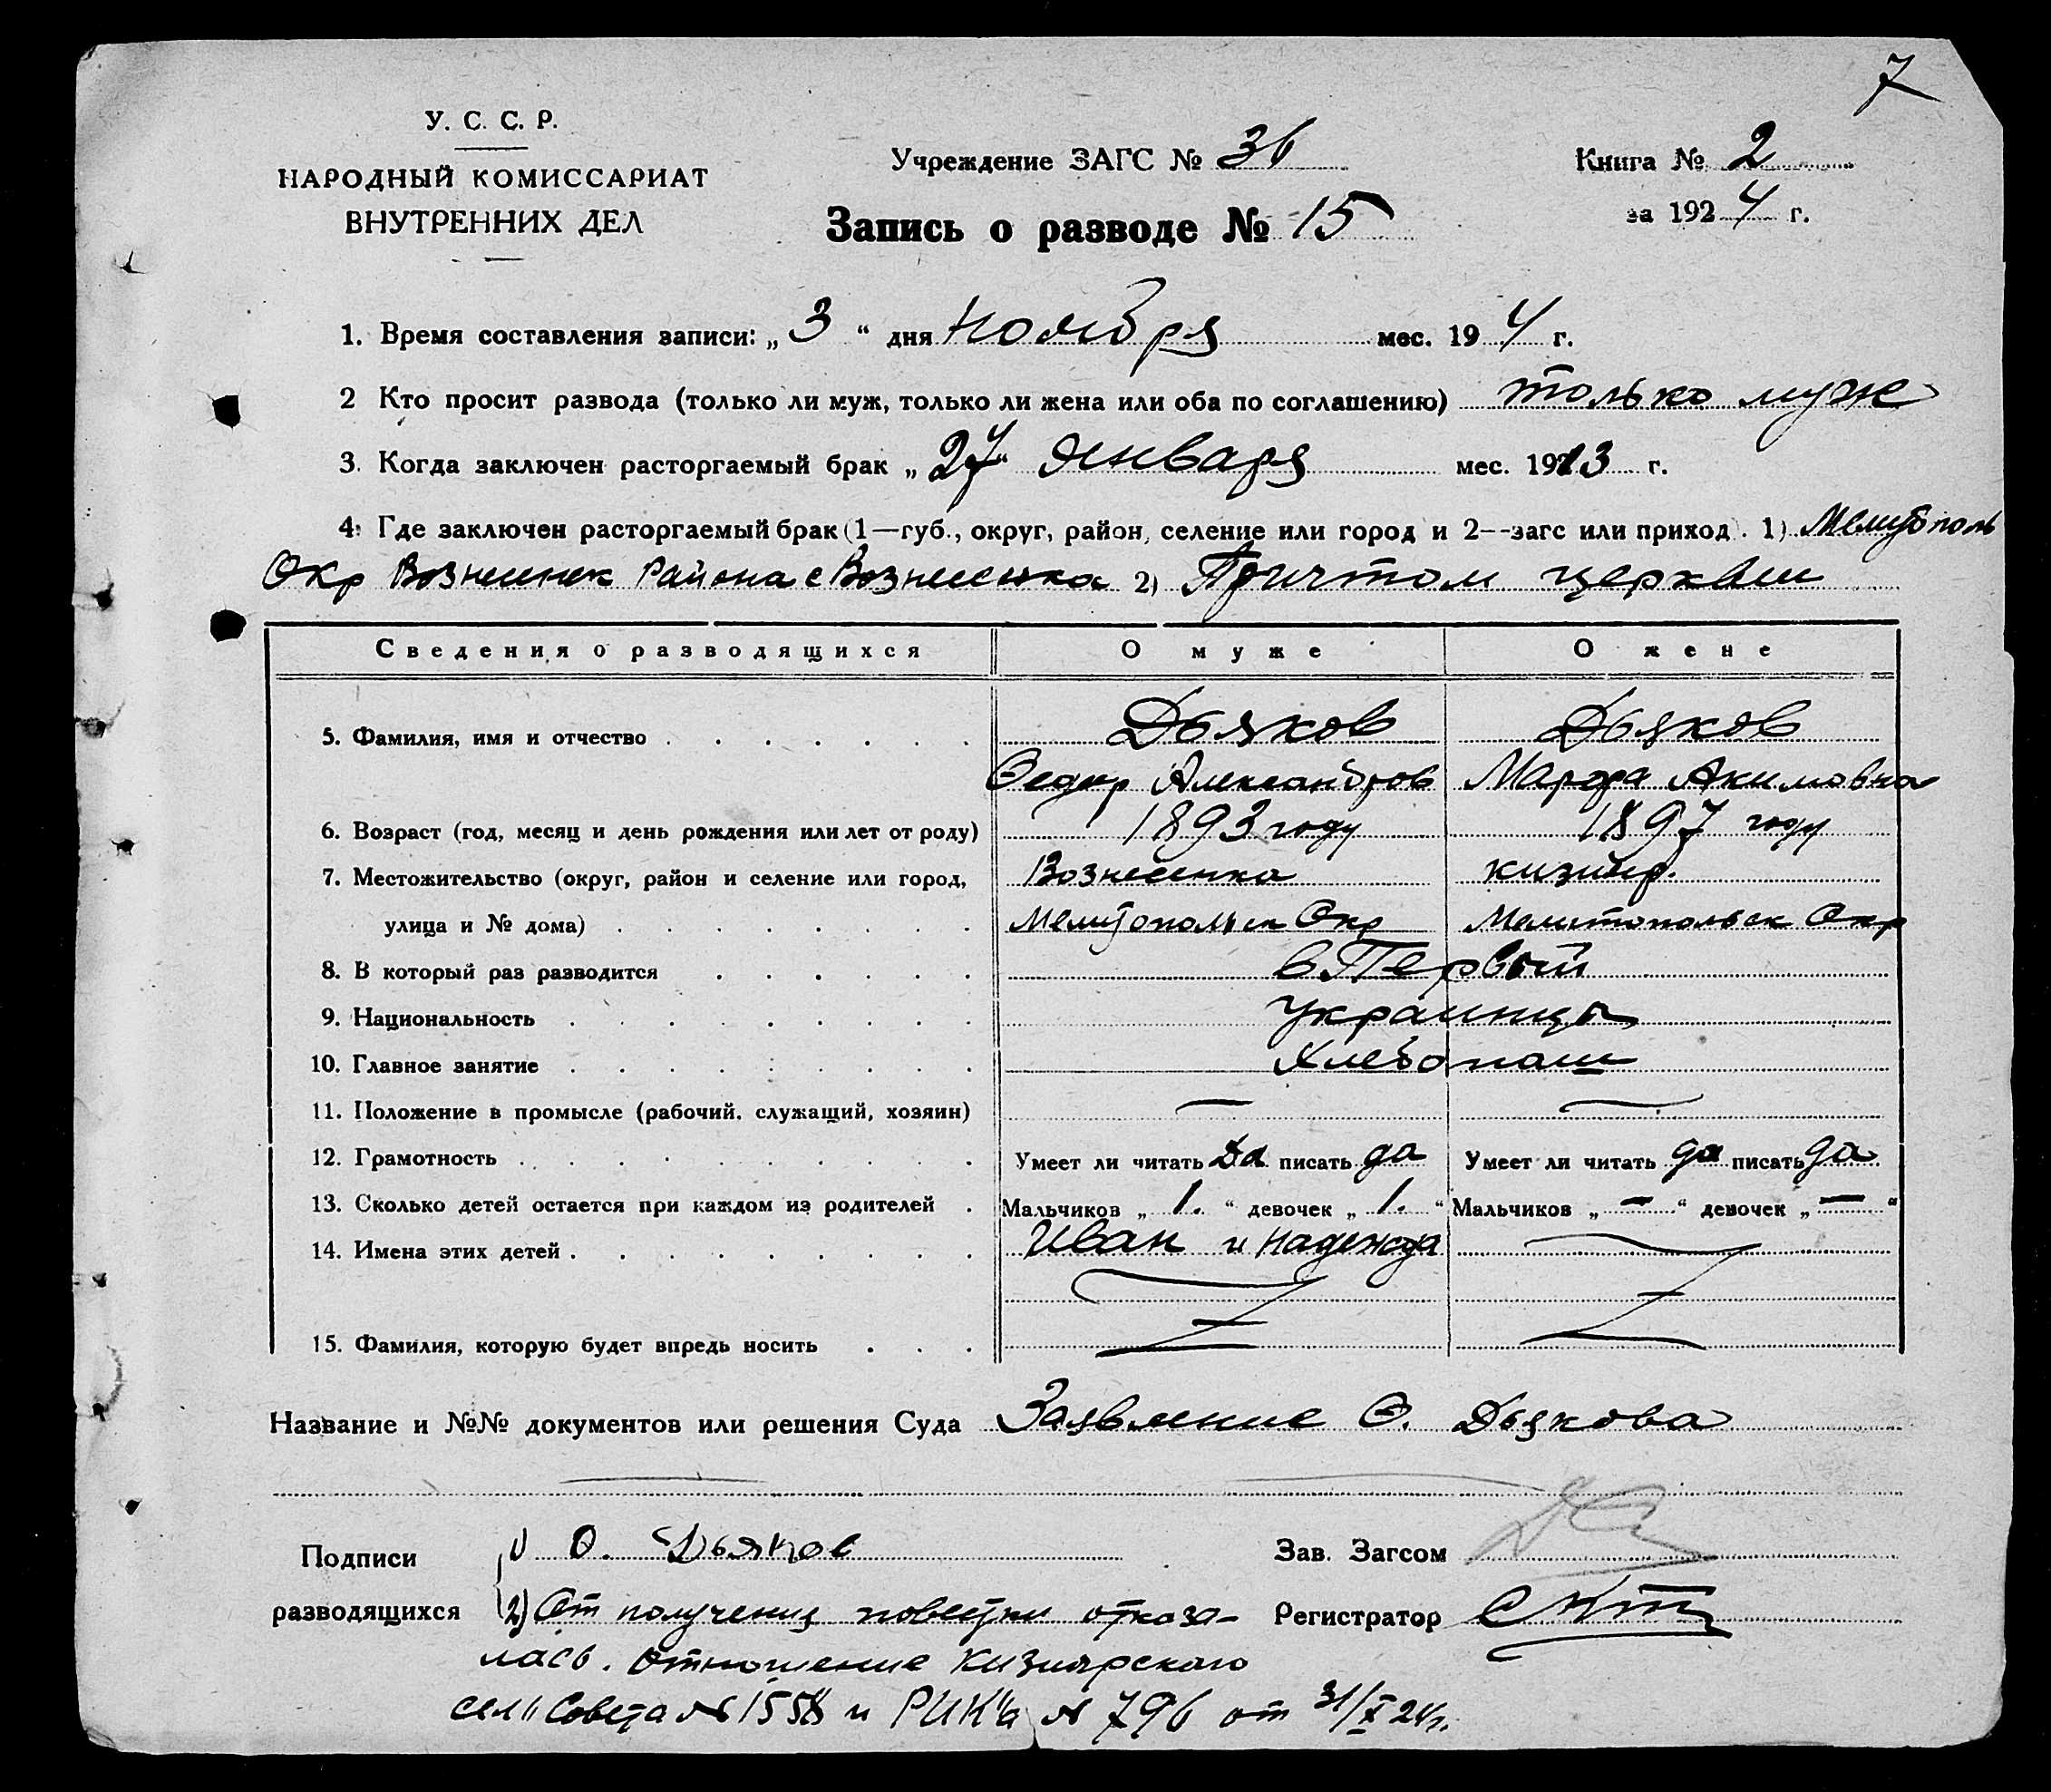 7
У. С. С. Р.
НАРОДНЫЙ КОМИССАРИАТ
ВНУТРЕННИХ ДЕЛ
Учреждение ЗАГС № 36
Книга № 2
за 1924 г.
Запись о разводе № 15
1. Время составления записи: „3“ дня ноября мес. 19 4 г.
2 Кто просит развода (только ли муж, только ли жена или оба по соглашению) только муж
3. Когда заключен расторгаемый брак „27“ января мес. 1913 г.
4. Где заключен расторгаемый брак (1—губ., округ, район, селение или город и 2--загс или приход). 1) Мелитополь
Окр Вознесенск Района с Вознесенка 2) Притчом церкви
Сведения о разводящихся О муже О жене
5. Фамилия, имя и отчество Дьяков Дьяков
Ѳедор Александров Марфа Акимовна
6. Возраст (год, месяц и день рождения или лет от роду) 1893 году 1897 году
7. Местожительство (округ, район и селение или город, Вознесенка кизияр.
улица и № дома) Мелитопольск Окр Мелитопольск Окр
8. В который раз разводится в Первый
9. Национальность Украинцы
10. Главное занятие Хлебопаш
11. Положение в промысле (рабочий, служащий, хозяин) — —
12. Грамотность Умеет ли читать Да писать да Умеет ли читать да писать да
13. Сколько детей остается при каждом из родителей Мальчиков „1.“ девочек „1.“ Мальчиков „—“ девочек „—“
14. Имена этих детей Иван и Надежда —
15. Фамилия, которую будет впредь носить
Название и №№ документов или решения Суда Заявление Ѳ. Дьякова
Подписи 1) Ѳ. Дьяков Зав. Загсом
разводящихся 2) От получения повестки отказа- Регистратор
лась. Отношение Кизиярского
сел. Совета № 1558 и РИК"а № 796 от 31/X 24 г.